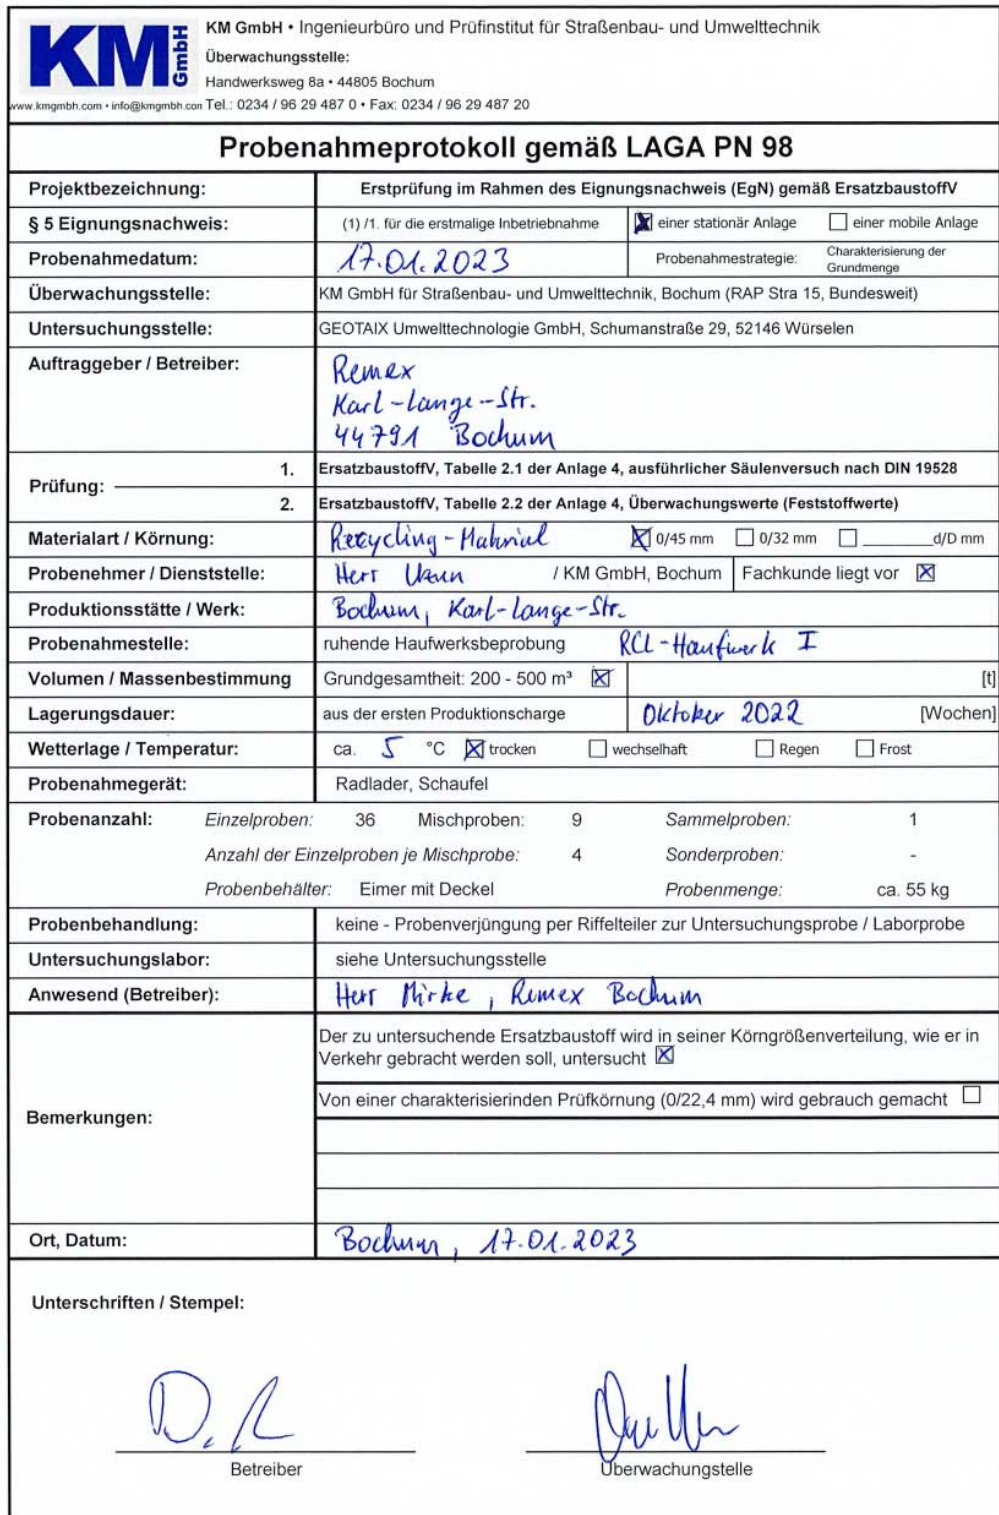 KM GmbH
KM GmbH • Ingenieurbüro und Prüfinstitut für Straßenbau- und Umwelttechnik
Überwachungsstelle:
Handwerksweg 8a • 44805 Bochum
www.kmgmbh.com • info@kmgmbh.con Tel.: 0234 / 96 29 487 0 • Fax: 0234 / 96 29 487 20
Probenahmeprotokoll gemäß LAGA PN 98
Projektbezeichnung: Erstprüfung im Rahmen des Eignungsnachweis (EgN) gemäß ErsatzbaustoffV
§ 5 Eignungsnachweis: (1) /1. für die erstmalige Inbetriebnahme ☒ einer stationär Anlage ☐ einer mobile Anlage
Probenahmedatum: 17.01.2023 Probenahmestrategie: Charakterisierung der Grundmenge
Überwachungsstelle: KM GmbH für Straßenbau- und Umwelttechnik, Bochum (RAP Stra 15, Bundesweit)
Untersuchungsstelle: GEOTAIX Umwelttechnologie GmbH, Schumanstraße 29, 52146 Würselen
Auftraggeber / Betreiber: Remex
Karl-Lange-Str.
44791 Bochum
Prüfung: 1. ErsatzbaustoffV, Tabelle 2.1 der Anlage 4, ausführlicher Säulenversuch nach DIN 19528
2. ErsatzbaustoffV, Tabelle 2.2 der Anlage 4, Überwachungswerte (Feststoffwerte)
Materialart / Körnung: Recycling-Material ☒ 0/45 mm ☐ 0/32 mm ☐ ________d/D mm
Probenehmer / Dienststelle: Herr / KM GmbH, Bochum Fachkunde liegt vor ☒
Produktionsstätte / Werk: Bochum, Karl-Lange-Str.
Probenahmestelle: ruhende Haufwerksbeprobung RCL-Haufwerk I
Volumen / Massenbestimmung Grundgesamtheit: 200 - 500 m³ ☒ [t]
Lagerungsdauer: aus der ersten Produktionscharge Oktober 2022 [Wochen]
Wetterlage / Temperatur: ca. 5 °C ☒ trocken ☐ wechselhaft ☐ Regen ☐ Frost
Probenahmegerät: Radlader, Schaufel
Probenanzahl: Einzelproben: 36 Mischproben: 9 Sammelproben: 1
Anzahl der Einzelproben je Mischprobe: 4 Sonderproben: -
Probenbehälter: Eimer mit Deckel Probenmenge: ca. 55 kg
Probenbehandlung: keine - Probenverjüngung per Riffelteiler zur Untersuchungsprobe / Laborprobe
Untersuchungslabor: siehe Untersuchungsstelle
Anwesend (Betreiber): Herr Mirke, Remex Bochum
Bemerkungen: Der zu untersuchende Ersatzbaustoff wird in seiner Körngrößenverteilung, wie er in
Verkehr gebracht werden soll, untersucht ☒
Von einer charakterisierinden Prüfkörnung (0/22,4 mm) wird gebrauch gemacht ☐
Ort, Datum: Bochum, 17.01.2023
Unterschriften / Stempel:
Betreiber Überwachungstelle